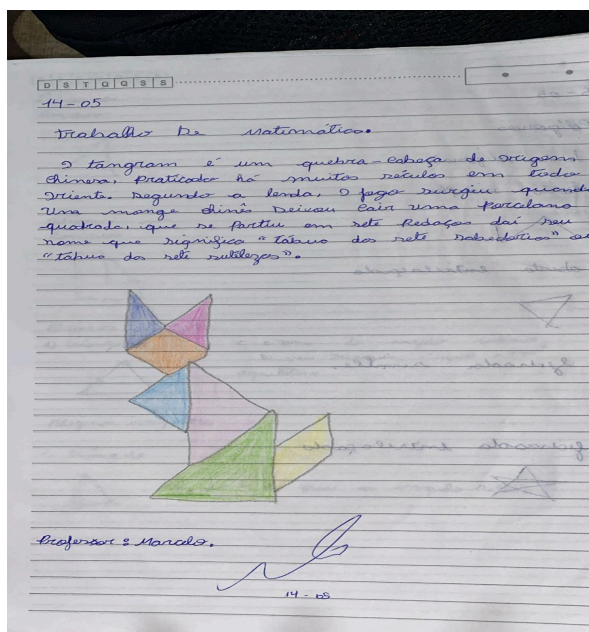 D S T Q Q S S
14-05
Trabalho De Matimático.
O tangram é um quebra-cabeça de origem
chinesa, Praticado há muitos séculos em todo
oriente. segundo a lenda, O jogo surgiu quando
Um monge chinês Deixou Cair uma Porcelana
quadrada, que se Partiu em sete Pedaços daí seu
nome que significa "tábua das sete sabedorias" ou
"tábua das sete sutilezas".
Professor: Marcelo.
14-05